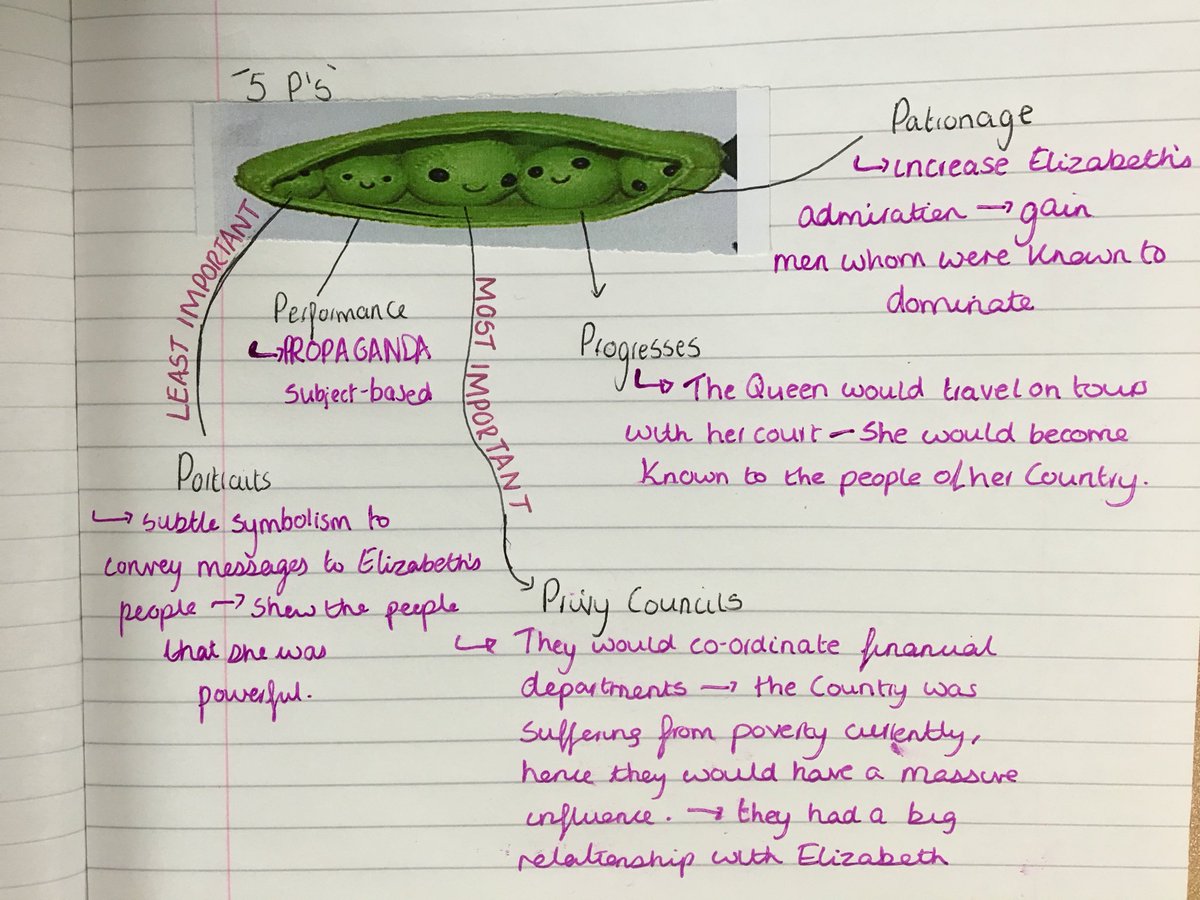 "5 P's"
Patronage
↳ increase Elizabeth's
admiration → gain
men whom were known to
dominate
LEAST IMPORTANT
Performance
↳ PROPAGANDA
subject-based
MOST IMPORTANT
Progresses
↳ The Queen would travel on tours
with her court – She would become
known to the people of her Country.
Portraits
↳ subtle symbolism to
convey messages to Elizabeth's
people → show the people
that she was
powerful.
Privy Councils
↳ They would co-ordinate financial
departments → the Country was
suffering from poverty currently,
hence they would have a massive
influence. → they had a big
relationship with Elizabeth